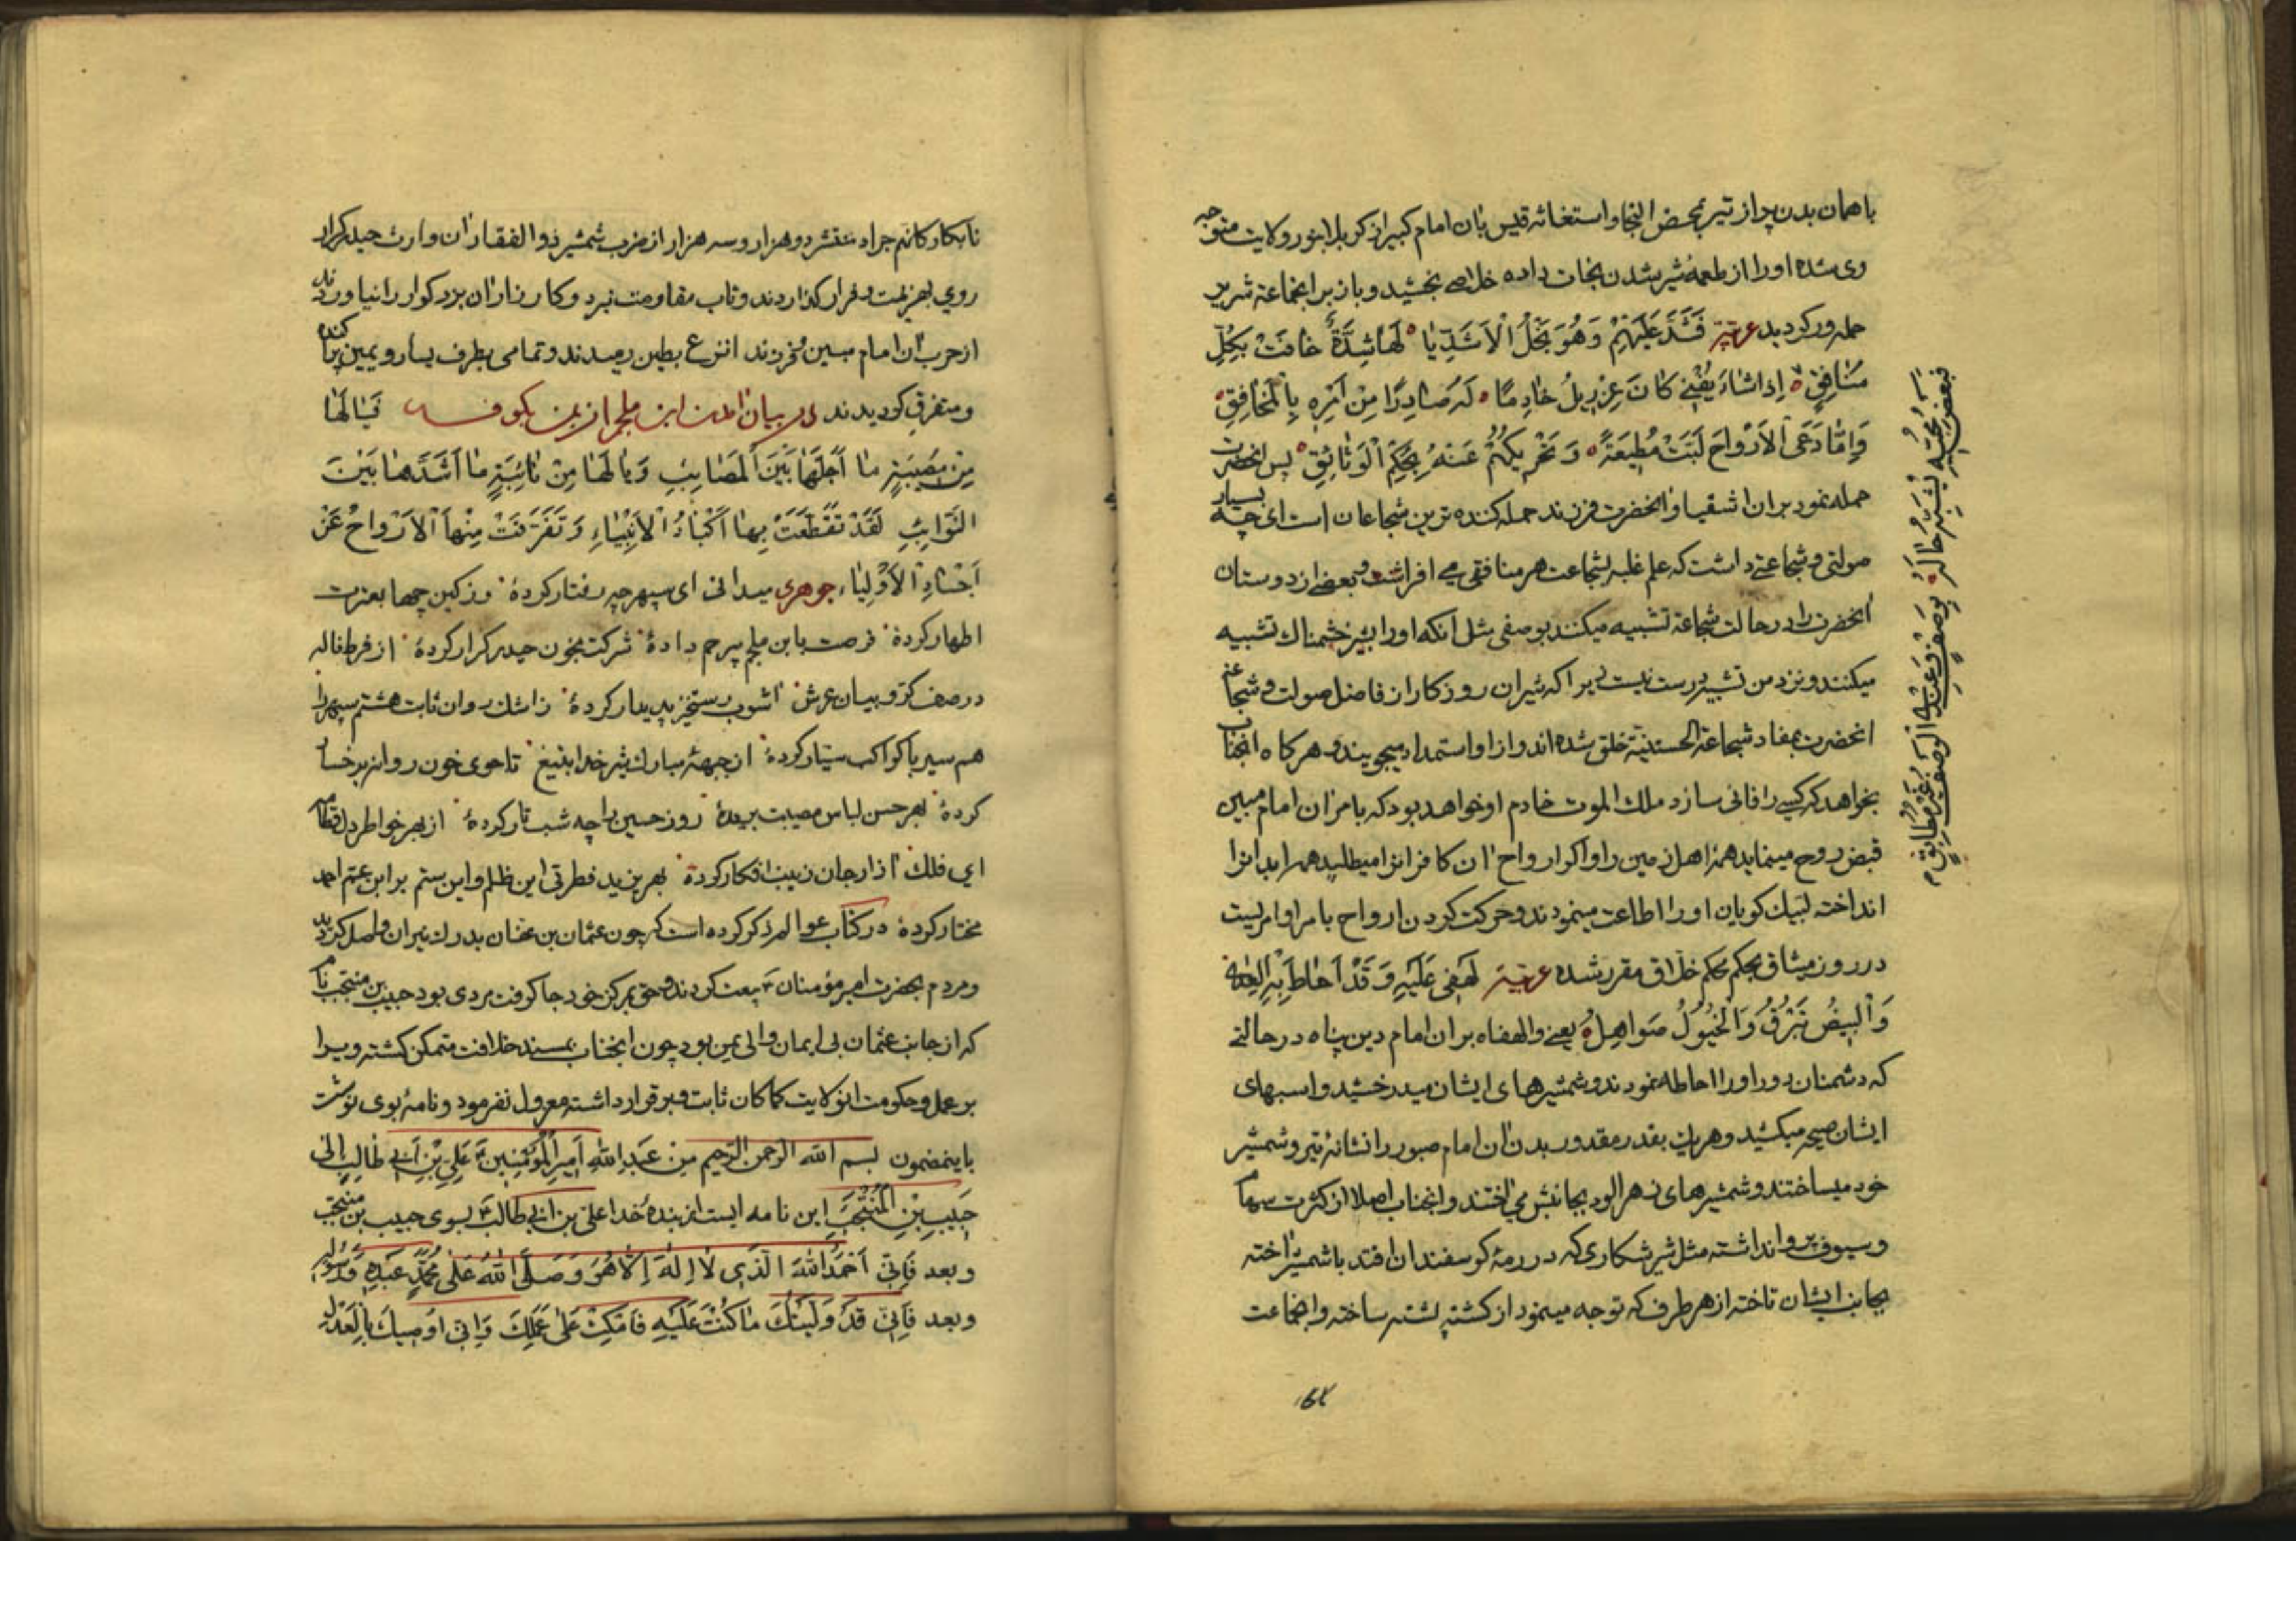 با همان بدن پر از تیر بمحض التجا و استغاثه قیس بان امام کبیر از کربلا بنور ولایت متوجه
وی شده او را از طعمهٔ شیر شدن نجات داده خلاصی بخشید و باز بر انجماعة شریر
حمله ور کردید عربیّة فَشَدَّ عَلَیْهِمْ وَهُوَ نَجْلُ الْاَشَدِّ یٰا لَهٰا شِدَّةً خٰافَتْ بِکُلِّ
مُنٰافِقٍ اِذٰا شٰاءَ یُفْنی کٰانَ عِزْریلُ خٰادِمًا لَهُ صٰادِرًا مِنْ اَمْرِهِ بِالْمَخٰافِقِ
وَاِمّٰا دَعَی الْاَرْوٰاحَ لَبَّتْ مُطیعَةً وَ تَحْریکُهُمْ عَنْهُ بِحُکْمِ الْوَثٰائِقِ پس انحضرت
حمله نمود بران اشقیا و انحضرت فرزند حمله کننده ترین شجاعان است ای چه بسیار
صولتی و شجاعتی داشت که علم غلبه بشجاعت هر منافقی می افراشت و بعضی از دوستان
انحضرت را در حالت شجاعة تشبیه میکنند بوصفی مثل انکه او را بشیر خشمناک تشبیه
میکنند و نزد من تشبیه درست نیست زیرا که شیران روزکار از فاضل صولت و شجاعة
انحضرت بمفاد شجاعة الحسینیّة خلق شده اند و از او استمداد میجویند و هر کاه انجناب
بخواهد که کسی را فانی سازد ملک الموت خادم او خواهد بود که بامر ان امام مبین
قبض روح مینماید همهٔ اهل زمین را و اکر ارواح ان کافرانرا میطلبید همه ابدانرا
انداخته لبیک کویان او را اطاعت مینمودند و حرکت کردن ارواح بامر او امریست
در روز میثاق بحکم محکم خلاق مقرر شده عربیّة لَهْفی عَلَیْهِ وَقَدْ اَحٰاطَ بِهِ الْعِدٰی
وَالْبیضُ تَبْرُقُ وَالْخُیُولُ صَوٰاهِلُ یعنی والهفاه بران امام دین پناه در حالتی
که دشمنان دور او را احاطه نمودند و شمشیرهای ایشان میدرخشید و اسبهای
ایشان صیحه میکشید و هریک بقدر مقدور بدن ان امام صبور را نشانهٔ تیر و شمشیر
خود میساختند و شمشیرهای زهر الود بجانبش می اختند و انجناب اصلا از کثرت سهام
و سیوف پروا نداشته مثل شیر شکاری که در رمهٔ کوسفندان افتد با شمشیر اخته
بجانب ایشان تاخته از هر طرف که توجه مینمود از کشته پشته ساخته و انجماعت
فَبَعْضُ مُحِبّیهِ یُشَبِّهُ حٰالَهُ بِوَصْفٍ وَعِنْدِی الْوَصْفُ غَیْرُ مُطٰابِقٍ
نابکار کانهم جراد منتشر دو هزار و سه هزار از ضرب شمشیر ذو الفقار ان وارث حیدر کرار
روی بهزیمت و فرار کذاردند و تاب مقاومت نبرد و کارزار ان بزرکوار را نیاوردند
از حرب ان امام مبین و فرزند انزع بطین رمیدند و تمامی بطرف یسار و یمین پراکنده
و متفرق کردیدند در بیان امدن ابن ملجم از یمن بکوفه فَیٰا لَهٰا
مِنْ مُصیبَةٍ مٰا اَجَلَّهٰا بَیْنَ الْمَصٰائِبِ وَیٰا لَهٰا مِنْ نٰائِبَةٍ مٰا اَشَدَّهٰا بَیْنَ
النَّوٰائِبِ لَقَدْ تَقَطَّعَتْ بِهٰا اَکْبٰادُ الْاَنْبِیٰاءِ وَتَفَرَّقَتْ مِنْهَا الْاَرْوٰاحُ عَنْ
اَجْسٰادِ الْاَوْلِیٰاءِ جوهری میدانی ای سپهر چه رفتار کردهٔ وز کین چها بعترت
اطهار کردهٔ فرصت بابن ملجم بیرحم دادهٔ شرکت بخون حیدر کرار کردهٔ از فرط ناله
در صف کروبیان عرش اشوب رستخیز پدیدار کردهٔ ز اشک روان ثابت هشتم سپهر را
هم سیر با کواکب سیّار کردهٔ از جبههٔ مبارک شیر خدا بتیغ تا جوی خون روانه برخسار
کردهٔ بهر حسن لباس مصیبت بریدهٔ روز حسین را چه شب تار کردهٔ از بهر خواطر دل قطام
ای فلک ازار جان زینب افکار کردهٔ بهر یزید فطرتی این ظلم و این ستم بر ابن عمّ احمد
مختار کردهٔ در کتاب عوالم ذکر کرده است که چون عثمان بن عفان بدرک نیران واصل کردید
و مردم بحضرت امیر مؤمنان بیعت کردند و حق بمرکز خود جا کرفت مردی بود حبیب بن منتجب نام
که از جانب عثمان بی ایمان والی یمن بود چون انجناب بمسند خلافت متمکن کشته ویرا
بر عمل و حکومت انولایت کماکان ثابت و برقرار داشته معزول نفرمود و نامهٔ بوی نوشت
باینمضمون بسم الله الرحمن الرحیم مِنْ عَبْدِ اللهِ اَمیرِ الْمُؤْمِنینَ عَلِیِّ بْنِ اَبی طٰالِبٍ اِلٰی
حَبیبِ بْنِ الْمُنْتَجَبِ این نامه ایست از بندهٔ خدا علی بن ابی طالب بسوی حبیب بن منتجب
و بعد فَاِنّی اَحْمَدُ اللهَ الَّذی لٰا اِلٰهَ اِلّٰا هُوَ وَصَلَّی اللهُ عَلٰی مُحَمَّدٍ عَبْدِهِ وَرَسُولِهِ
و بعد فَاِنّی قَدْ وَلَّیْتُکَ مٰا کُنْتَ عَلَیْهِ فَامْکُثْ عَلٰی عَمَلِکَ وَاِنّی اُوصیکَ بِالْعَدْلِ